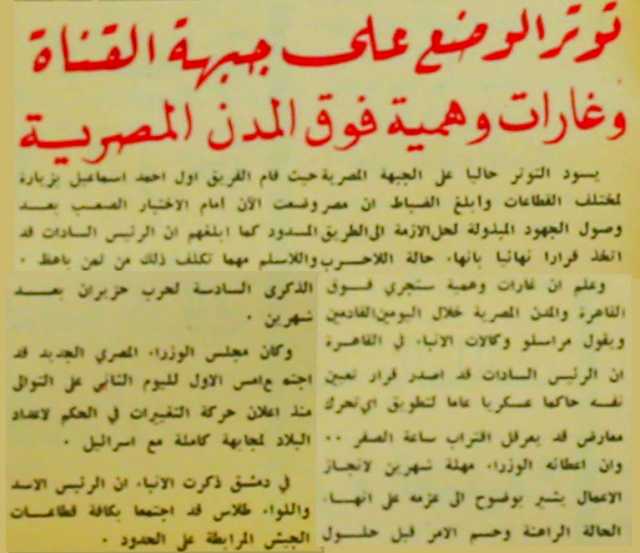 توتر الوضع على جبهة القناة
وغارات وهمية فوق المدن المصرية
يسود التوتر حاليا على الجبهة المصرية
حيث قام الفريق اول احمد اسماعيل بزيارة
لمختلف القطاعات وأبلغ الضباط ان مصر
وضعت الآن أمام الاختيار الصعب بعد
وصول الجهود المبذولة لحل الازمة الى الطريق
المسدود كما ابلغهم ان الرئيس السادات قد
اتخذ قرارا نهائيا بانهاء حالة اللاحرب
واللاسلم مهما تكلف ذلك من ثمن باهظ .
وعلم ان غارات وهمية ستجري فوق
القاهرة والمدن المصرية خلال اليومين القادمين
ويقول مراسلو وكالات الانباء في القاهرة
ان الرئيس السادات قد اصدر قرار تعيين
نفسه حاكما عسكريا عاما لتطويق اي تحرك
معارض قد يعرقل اقتراب ساعة الصفر ..
وان اعطائه الوزراء مهلة شهرين لانجاز
الاعمال يشير بوضوح الى عزمه على انهاء
الحالة الراهنة وحسم الامر قبل حلول
الذكرى السادسة لحرب حزيران بعد
شهرين .
وكان مجلس الوزراء المصري الجديد قد
اجتمع امس الاول لليوم الثاني على التوالي
منذ اعلان حركة التغيرات في الحكم لاعداد
البلاد لمجابهة كاملة مع اسرائيل .
في دمشق ذكرت الانباء ان الرئيس الاسد
واللواء طلاس قد اجتمعا بكافة قطاعات
الجيش المرابطة على الحدود .